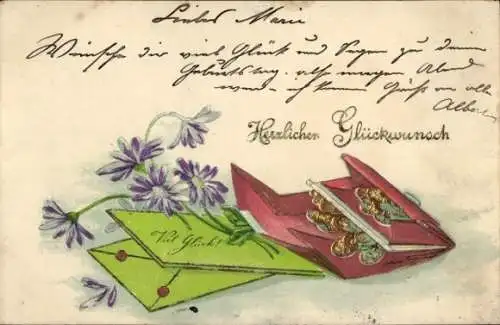 Liebes Marie
Wünsche dir viel Glück und Segen zu deinem
Geburtstag. also morgen Abend
werde ich kommen Gruß an alle
Albert
Herzlichen Glückwunsch
Viel Glück!